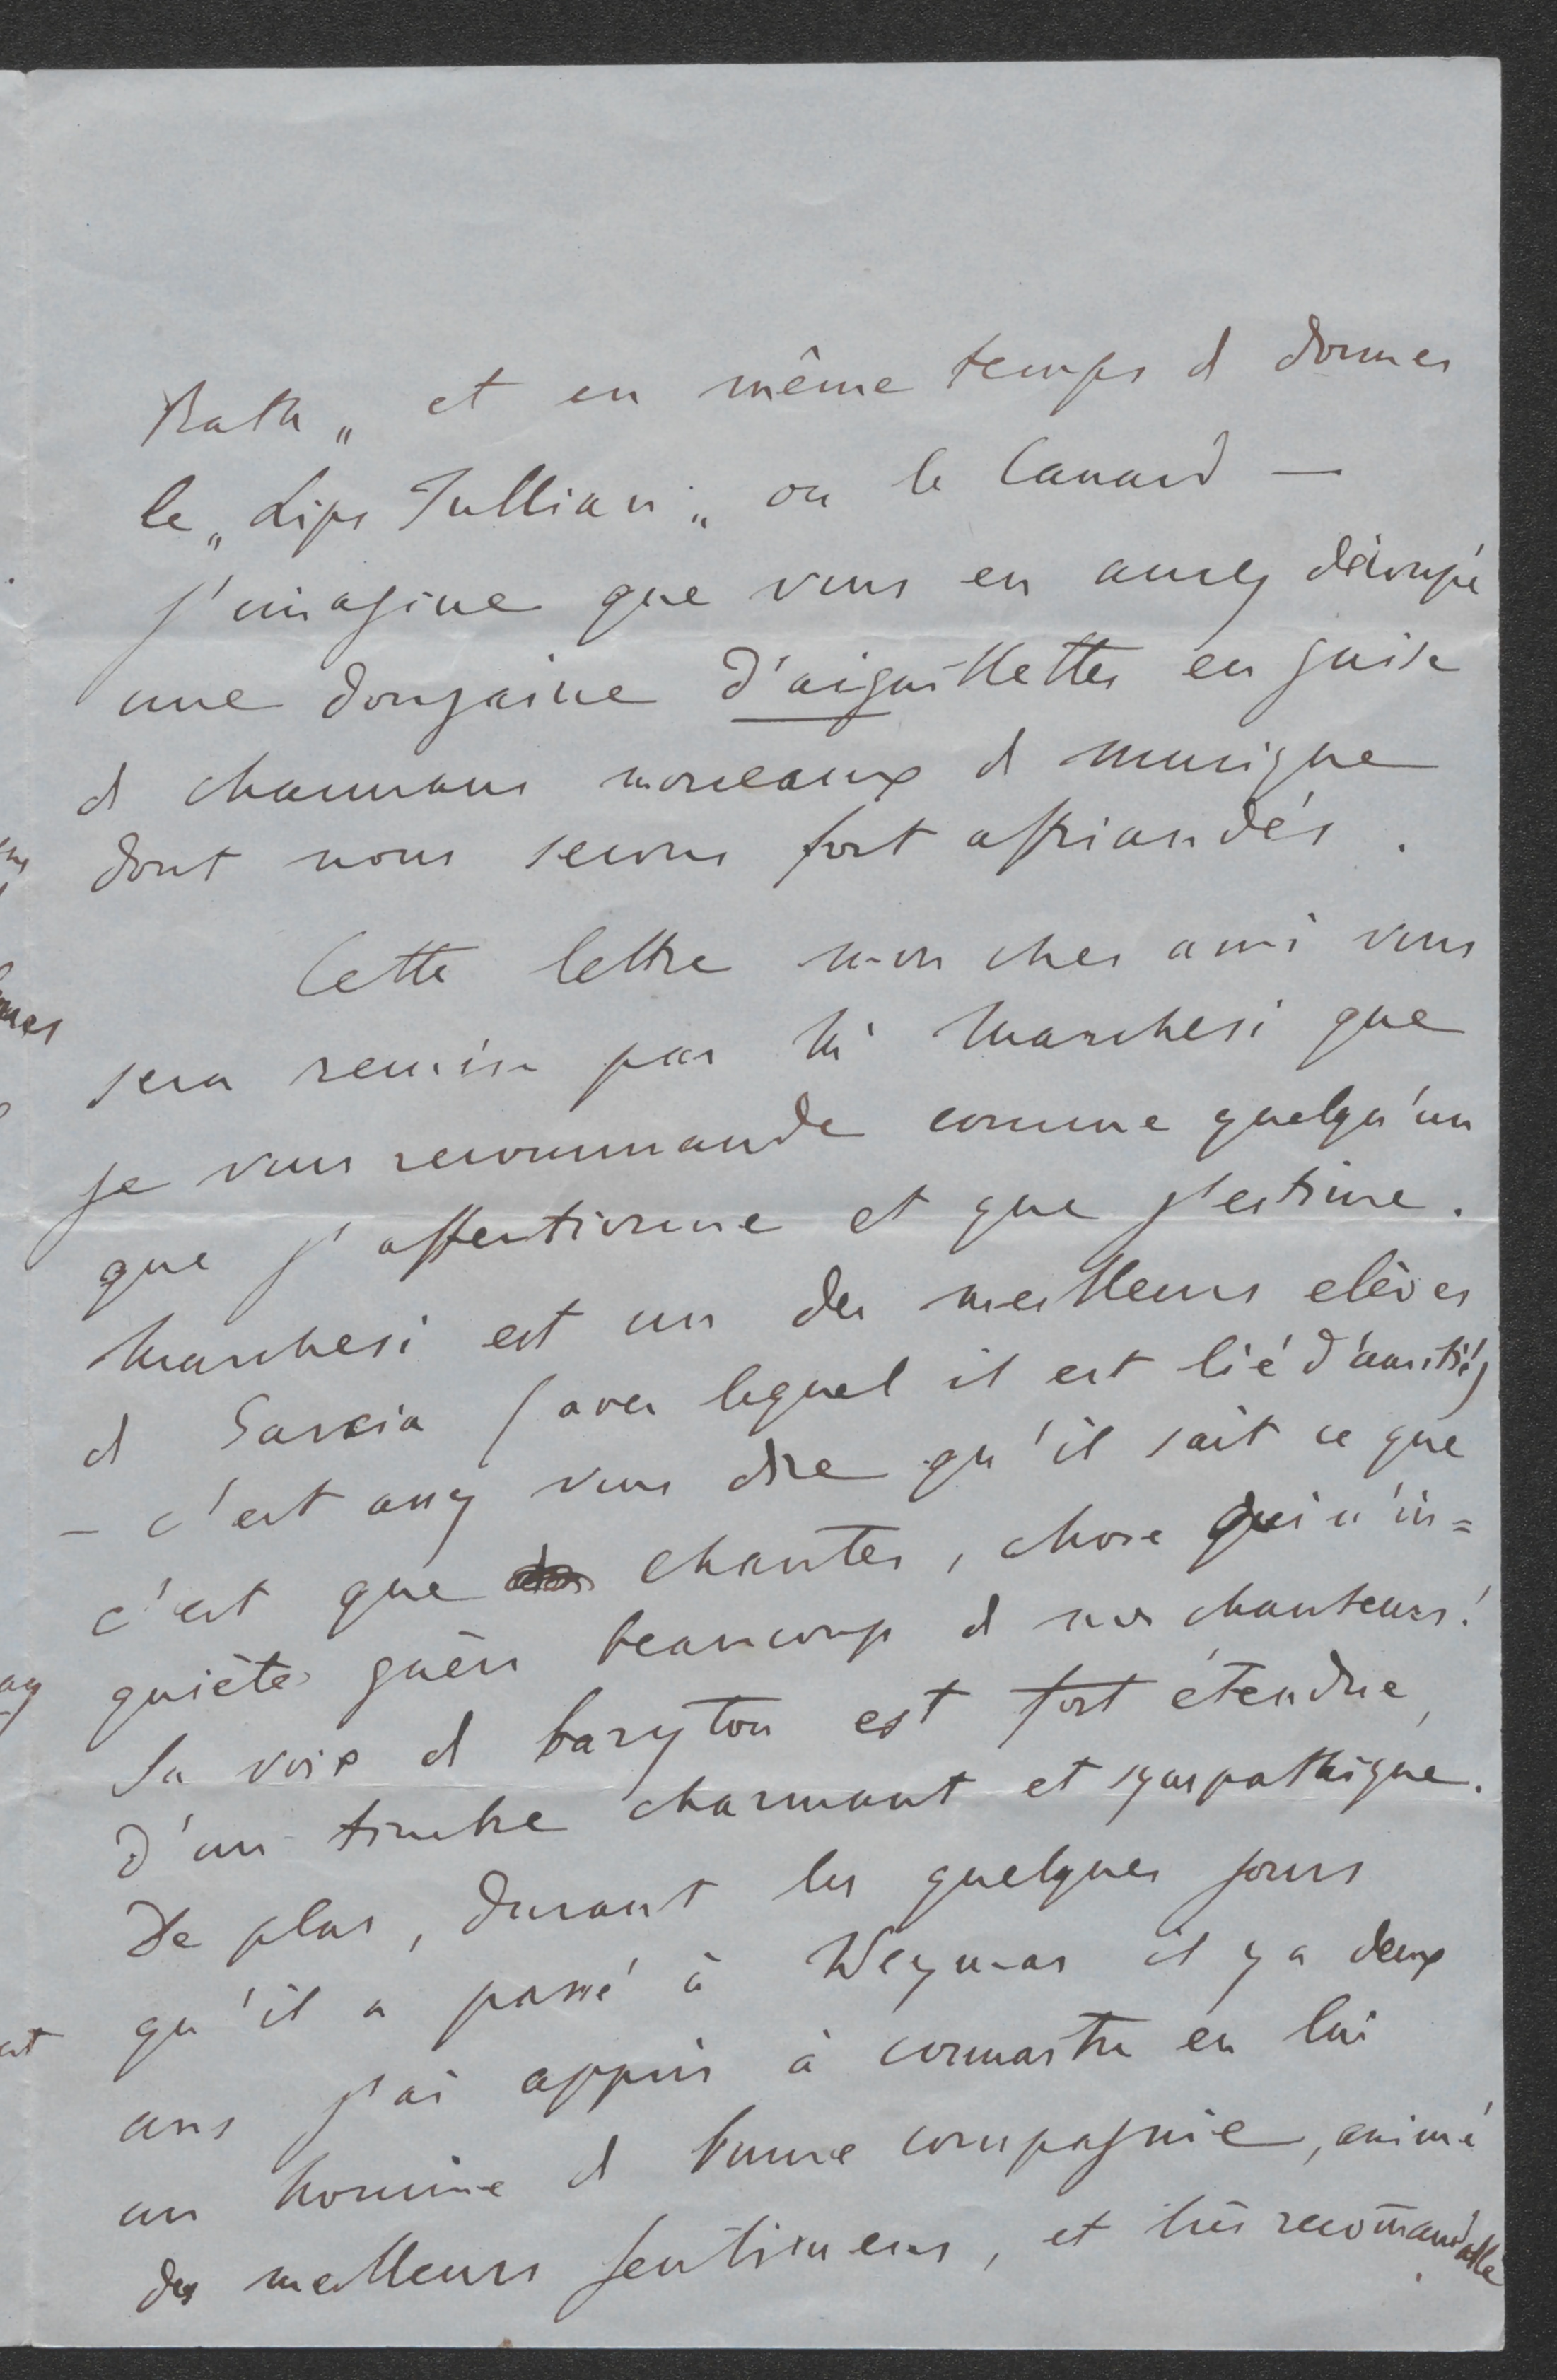 Rath„ et en même temps de donner
le „Lips Tullian„ ou le Canard —
j'imagine que vous en aurez découpé
une douzaine d'aiguillettes en guise
de charmans morceaux de musique
dont nous serons fort affriandés.
Cette lettre mon cher ami vous
sera remise par Mr Marchesi que
je vous recommande comme quelqu'un
que j'affectionne et que j'estime.
Marchesi est un des meilleurs elèves
de Garcia (avec lequel il est lié d'amitié)
– c'est assez vous dire qu'il sait ce que
c'est que chanter, chose qui n'in=
quiète guère beaucoup de nos chanteurs!
Sa voix de baryton est fort étendue,
d'un timbre charmant et sympathique.
De plus, durant les quelques jours
qu'il a passé à Weymar il y a deux
ans j'ai appris à connaitre en lui
un homme de bonne compagnie, animé
des meilleurs sentimens, et très recom̄andable.